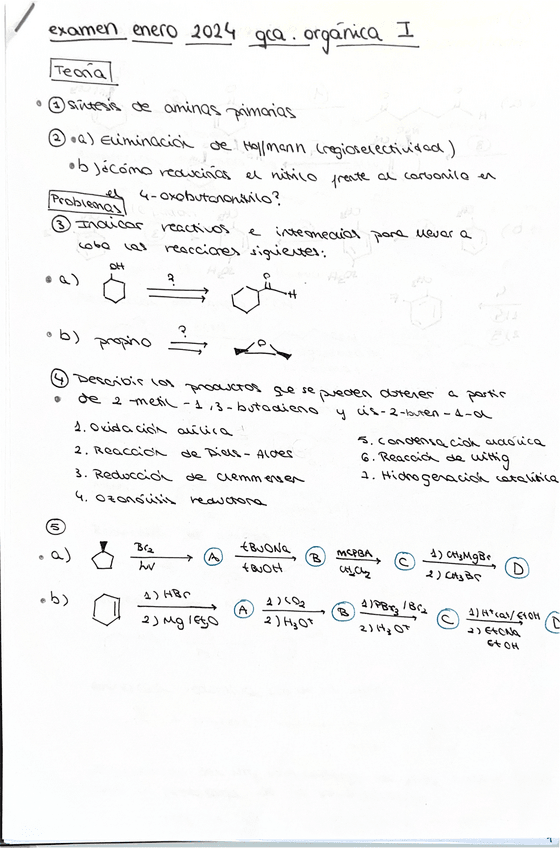 examen enero 2024 qca. orgánica I
Teoría
① Síntesis de aminas primarias
② a) Eliminación de Hoffmann (regioselectividad)
b) ¿Cómo reducirías el nitrilo frente al carbonilo en
el 4-oxobutanonitrilo?
Problemas
③ Indicar reactivos e intermedios para llevar a
cabo las reacciones siguientes:
a) OH ? O H
b) propino ? O
④ Describir los productos que se pueden obtener a partir
de 2-metil-1,3-butadieno y cis-2-buten-1-al
1. Oxidación alílica
2. Reacción de Diels-Alder
3. Reducción de Clemmensen
4. Ozonólisis reductora
5. Condensación aldólica
6. Reacción de Wittig
7. Hidrogenación catalítica
⑤
a) Br2 hν A tBuONa tBuOH B MCPBA CH2Cl2 C 1) CH3MgBr 2) CH3Br D
b) 1) HBr 2) Mg/Et2O A 1) CO2 2) H3O+ B 1) PBr3/Br2 2) H3O+ C 1) H+cat/EtOH 2) EtONa EtOH D